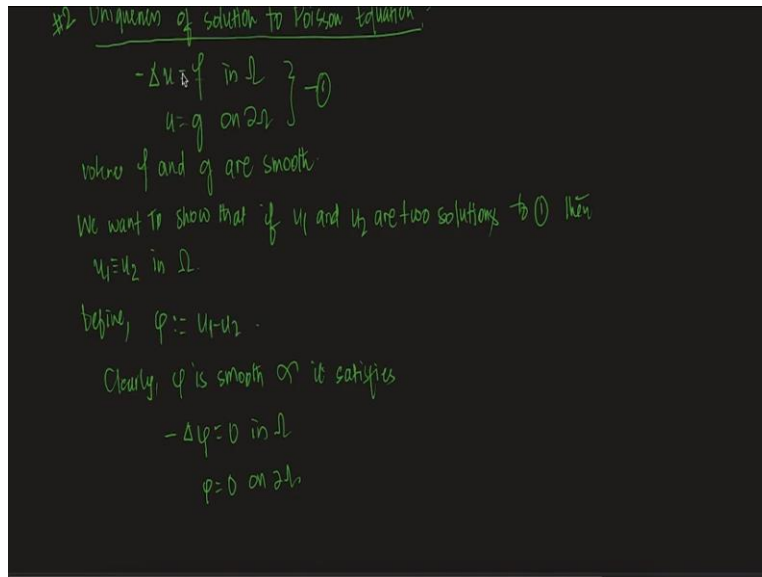 #2 Uniqueness of solution to Poisson Equation:
-Δu = f in Ω
u = g on ∂Ω } -①
where f and g are smooth.
We want to show that if u₁ and u₂ are two solutions to ① then
u₁ ≡ u₂ in Ω.
Define, φ := u₁-u₂.
Clearly, φ is smooth & it satisfies
-Δφ = 0 in Ω
φ = 0 on ∂Ω.